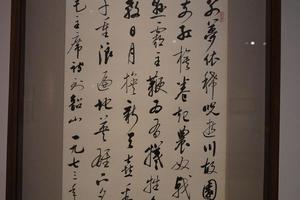 别夢依稀咒逝川故園
前红旗卷起農奴戟
悬霸主鞭为有犧牲
教日月换新天喜看
千重浪遍地英雄下夕
毛主席诗到韶山 一九七三年